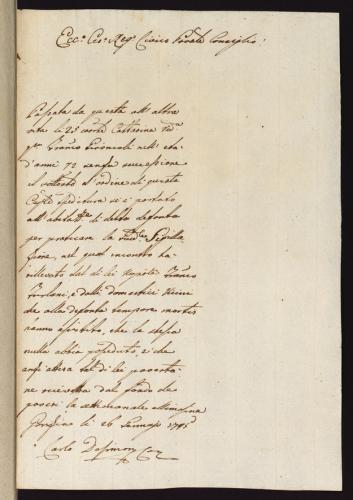 Ecc.° Ces.° Reg.° Civico Prov.le Consiglio.
Passata da questa all' altra
vita li 25 corr.te Catterina V.va
q.m Franco Sironcali nell' età
d'anni 72 senza successione
il sottoscr.o d' ordine di questa
Ces.a speditura si è portato
all' abitat.ne di detta defonta
per praticare la Giud.le Sigilla
zione, nel qual incontro ha
rillevato dal di lei Nipote Franco
Furlani, e dalli domestici
che alla defonta tempore mortis
hanno assistito, che la stessa
nulla abbia posseduto, e che
anzi attesa la di lei povertà
ne riceveva dal fondo de
poveri la settimanale elemosina
Gorizia li 26 Gennajo 1785
Carlo Dosimon Can